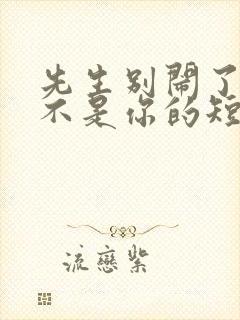 先生别鬧了
不是你的短
流戀紫